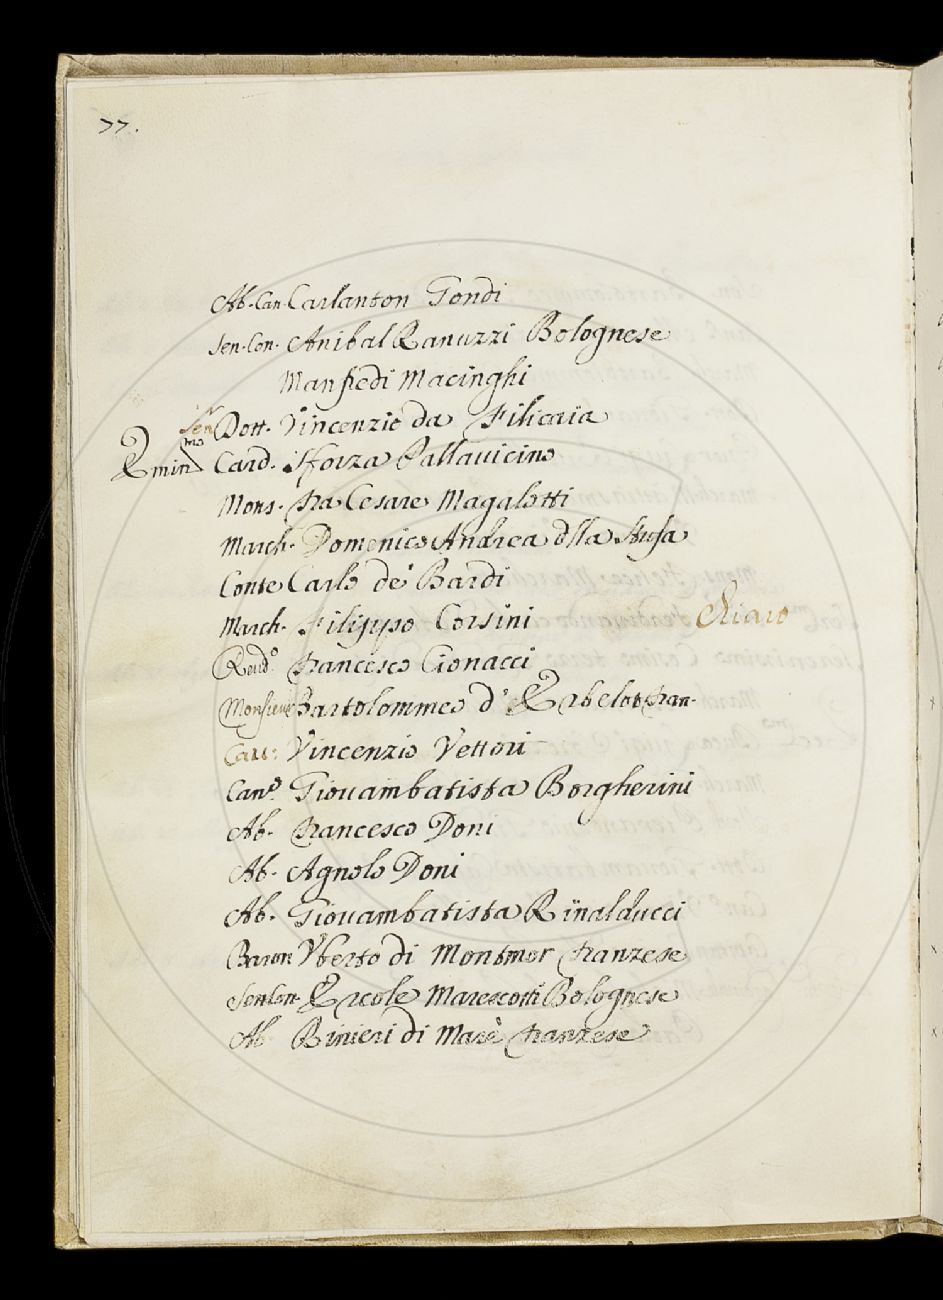 77.
Ab. Can. Carlanton Gondi
Sen. Con. Anibal Ranuzzi Bolognese
Manfredi Macinghi
Sen.
Dott. Vincenzio da Filicaia
Emin.mo Card. Sforza Pallavicino
Mons. fra Cesare Magalotti
March. Domenico Andrea dlla Stufa
Conte Carlo de' Bardi
March. Filippo Corsini Chiaro
Revd.o Francesco Cionacci
Monsieur Bartolommeo d' Erbelot fran.
Cau: Vincenzio Vettori
Can.o Giouambatista Borgherini
Ab. Francesco Doni
Ab. Agnolo Doni
Ab. Giouambatista Rinalducci
Baron Vberto di Montmor franzese
Sen. Con. Ercole Marescotti Bolognese
Ab. Rinieri di Marè franzese